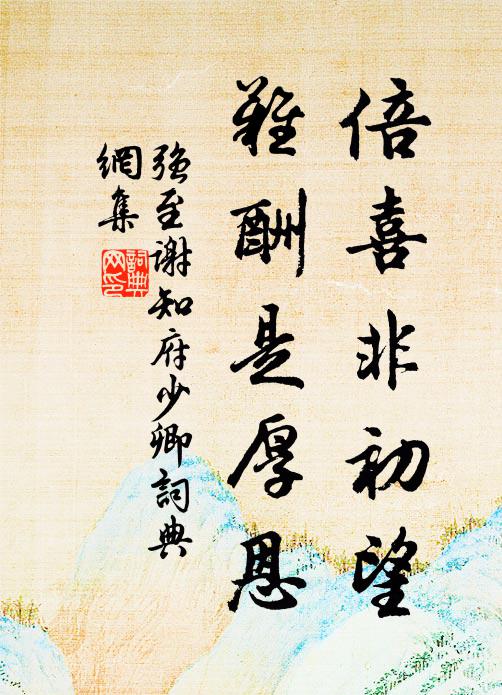 倍喜非初望
難酬是厚恩
強至謝知府少卿詞典
網集
詞典
网印